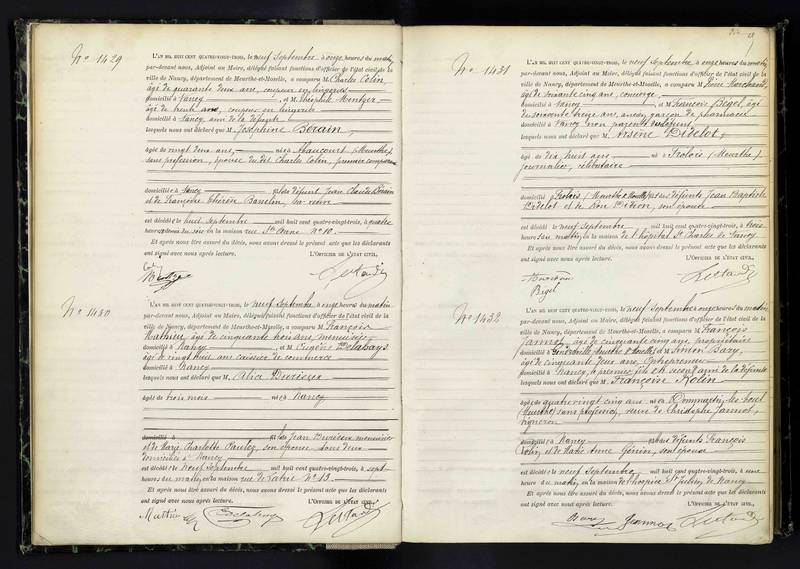 N° 1429
L'AN MIL HUIT CENT QUATRE-VINGT-TROIS, le neuf Septembre à onze heures du matin
par-devant nous, Adjoint au Maire, délégué faisant fonctions d'officier de l'état civil de la
ville de Nancy, département de Meurthe-et-Moselle, a comparu M. Charles Colin,
âgé de quarante deux ans, coupeur en lingeries
domicilié à Nancy et M. Théophile Mentzer
âgé de trente ans, coupeur en lingerie
domicilié à Nancy ami de la défunte
lesquels nous ont déclaré que M. Joséphine Berain,
âgée de vingt deux ans, née à Haucourt (Meurthe)
sans profession, épouse du dit Charles Colin, premier comparant
domiciliée à Nancy fille de défunt Jean Claude Berain
et de Françoise Thérèse Basselin, sa veuve
est décédée le huit Septembre mil huit cent quatre-vingt-trois, à quatre
heures du soir en la maison rue Ste Anne N° 10.
Et après nous être assuré du décès, nous avons dressé le présent acte que les déclarants
ont signé avec nous après lecture. L'OFFICIER DE L'ÉTAT CIVIL,
N° 1430
L'AN MIL HUIT CENT QUATRE-VINGT-TROIS, le neuf Septembre à onze heures du matin
par-devant nous, Adjoint au Maire, délégué faisant fonctions d'officier de l'état civil de la
ville de Nancy, département de Meurthe-et-Moselle, a comparu M. François
Mathieu, âgé de cinquante trois ans, menuisier
domicilié à Nancy et M. Eugène Delahays
âgé de vingt huit ans caissier de commerce
domicilié à Nancy
lesquels nous ont déclaré que M. Alice Durieux
âgée de trois mois née à Nancy
domicilié à fille de Jean Durieux menuisier
et de Marie Charlotte Paulez, son épouse tous deux
domiciliés à Nancy
est décédée le neuf Septembre mil huit cent quatre-vingt-trois, à sept
heures du matin, en la maison rue de N° 13.
Et après nous être assuré du décès, nous avons dressé le présent acte que les déclarants
ont signé avec nous après lecture. L'OFFICIER DE L'ÉTAT CIVIL,
Mathieu
N° 1431
L'AN MIL HUIT CENT QUATRE-VINGT-TROIS, le neuf Septembre, à onze heures du matin
par-devant nous, Adjoint au Maire, délégué faisant fonctions d'officier de l'état civil de la
ville de Nancy, département de Meurthe-et-Moselle, a comparu M. Pierre Marchand,
âgé de soixante cinq ans, concierge
domicilié à Nancy et M. François Begel, âgé
de soixante treize ans, ancien garçon de pharmacie
domicilié à Nancy non parents du défunt
lesquels nous ont déclaré que M. Arsène Didelot
âgé de dix huit ans né à Frolois (Meurthe)
journalier, célibataire
domicilié à Frolois (Meurthe & Moselle) fils des défunts Jean Baptiste
Didelot et de son épouse
est décédé le neuf Septembre mil huit cent quatre-vingt-trois, à trois
heures du matin, en la maison de l'hôpital St Charles de Nancy
Et après nous être assuré du décès, nous avons dressé le présent acte que les déclarants
ont signé avec nous après lecture. L'OFFICIER DE L'ÉTAT CIVIL,
Marchand
Begel
N° 1432
L'AN MIL HUIT CENT QUATRE-VINGT-TROIS, le neuf Septembre onze heures du matin
par-devant nous, Adjoint au Maire, délégué faisant fonctions d'officier de l'état civil de la
ville de Nancy, département de Meurthe-et-Moselle, a comparu M. François
Jannot, âgé de cinquante cinq ans, propriétaire
domicilié à Meurthe & Moselle et M. Simon Bary,
âgé de cinquante deux ans, Entrepreneur
domicilié à Nancy, le premier fils & le second ami de la défunte
lesquels nous ont déclaré que M. Françoise Rolin
âgée de quatre vingt cinq ans née à Dommartin les Toul
(Meurthe) sans profession, veuve de Christophe Jannot,
vigneron
domiciliée à Nancy fille des défunts François
Rolin, et de Marie Anne Génin, son épouse
est décédée le neuf Septembre mil huit cent quatre-vingt-trois, à une
heure du matin, en la maison de l'hospice St Julien, de Nancy
Et après nous être assuré du décès, nous avons dressé le présent acte que les déclarants
ont signé avec nous après lecture. L'OFFICIER DE L'ÉTAT CIVIL,
Bary Jeannot